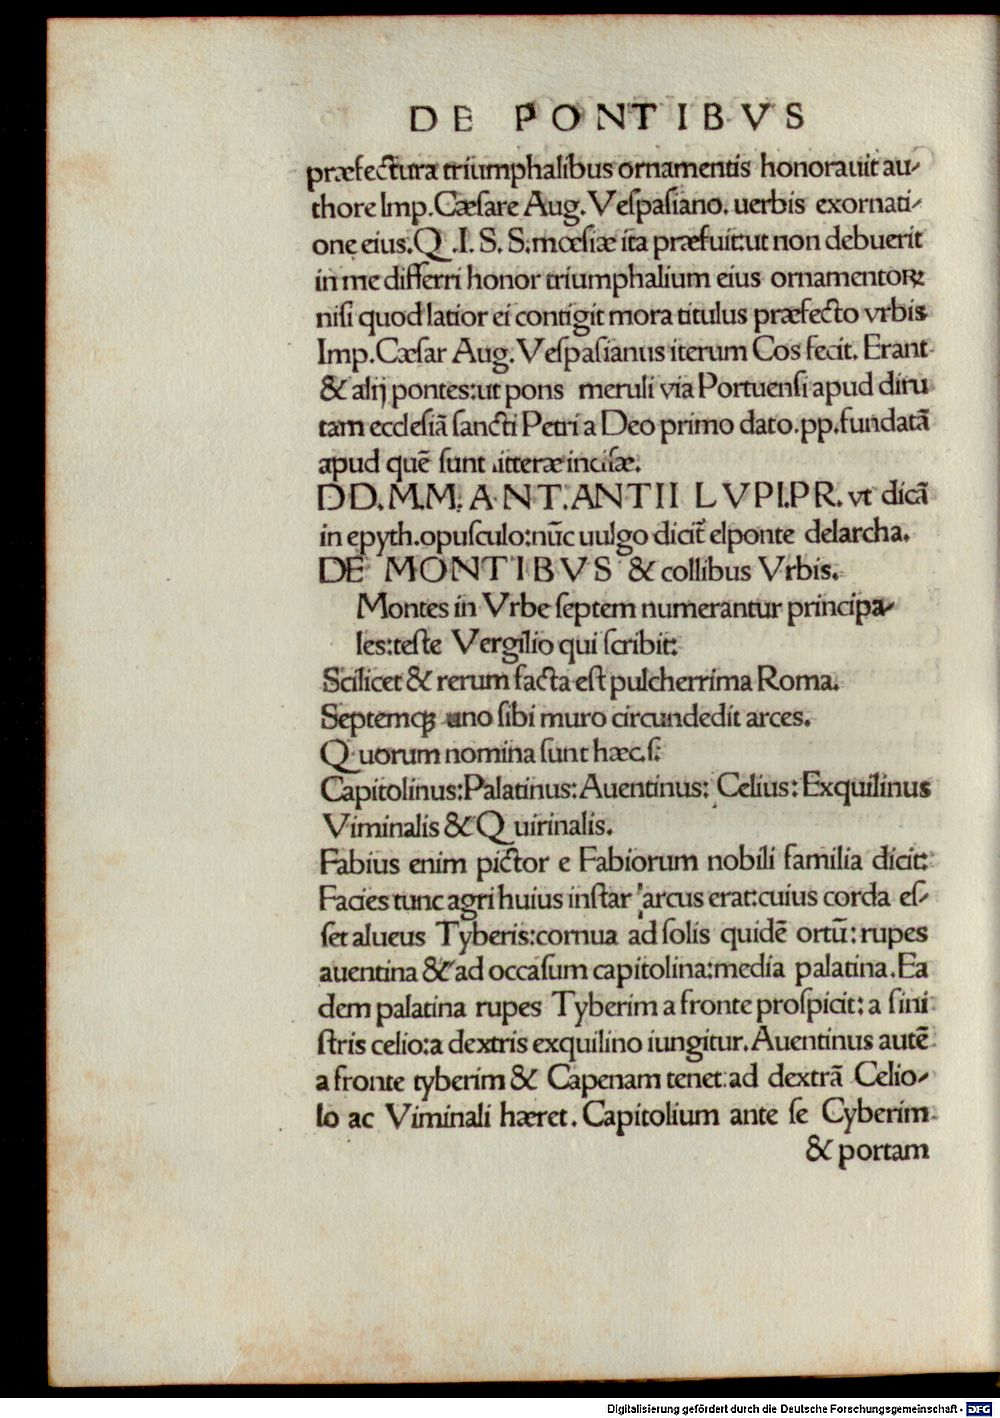 DE PONTIBVS
præfectura triumphalibus ornamentis honorauit au-
thore Imp. Cæsare Aug. Vespasiano. uerbis exornati-
one eius. Q .I. S. S. mœsiæ ita præfuit: ut non debuerit
in me differri honor triumphalium eius ornamentoꝝ:
nisi quod latior ei contigit mora titulus præfecto vrbis
Imp. Cæsar Aug. Vespasianus iterum Cos fecit. Erant
& alij pontes: ut pons meruli via Portuensi apud diru
tam ecclesiã sancti Petri a Deo primo dato. pp. fundatã
apud quẽ sunt litteræ incisæ.
DD. M.M. A·N·T. ANTII LVPI. PR. vt dicã
in epyth. opusculo: nũc uulgo dicit̃ elponte delarcha.
DE MONTIBVS & collibus Vrbis.
Montes in Vrbe septem numerantur principa-
les: teste Vergilio qui scribit:
Scilicet & rerum facta est pulcherrima Roma.
Septemqꝫ uno sibi muro circundedit arces.
Quorum nomina sunt hæc. s:
Capitolinus: Palatinus: Auentinus: Celius: Exquilinus
Viminalis & Quirinalis.
Fabius enim pictor e Fabiorum nobili familia dicit:
Facies tunc agri huius instar arcus erat: cuius corda es-
set alueus Tyberis: cornua ad solis quidẽ ortũ: rupes
auentina & ad occasum capitolina: media palatina. Ea
dem palatina rupes Tyberim a fronte prospicit: a sini
stris celio: a dextris exquilino iungitur. Auentinus autẽ
a fronte tyberim & Capenam tenet: ad dextrã Celio-
lo ac Viminali hæret. Capitolium ante se Cyberim
& portam
Digitalisierung gefördert durch die Deutsche Forschungsgemeinschaft - DFG